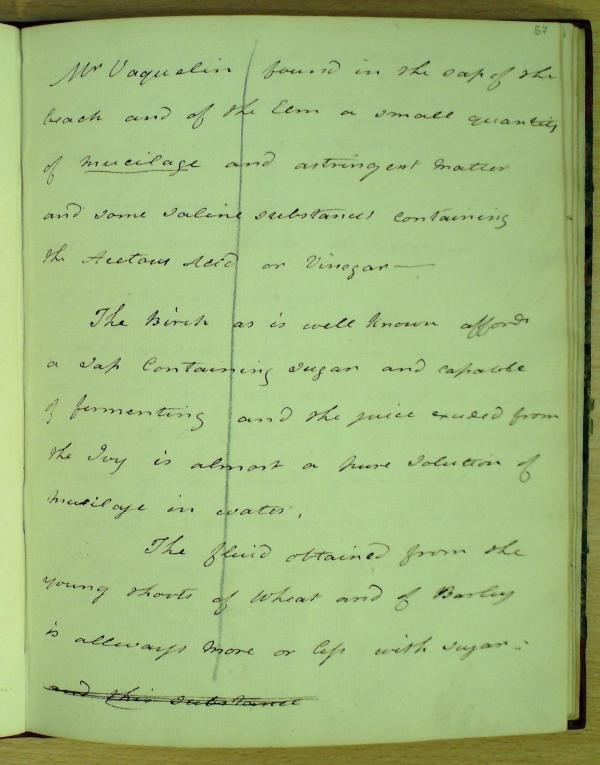 57
Mr Vaquelin found in the sap of the
beach and of the Elm a small quantity
of mucilage and astringent matter
and some saline substances containing
the Acetous Acid or Vinegar —
The Birch as is well known affords
a sap containing sugar and capable
of fermenting and the juice exuded from
the Ivy is almost a pure solution of
mucilage in water.
The fluid obtained from the
young shoots of Wheat and of Barley
is allways more or less with sugar :
and this substance